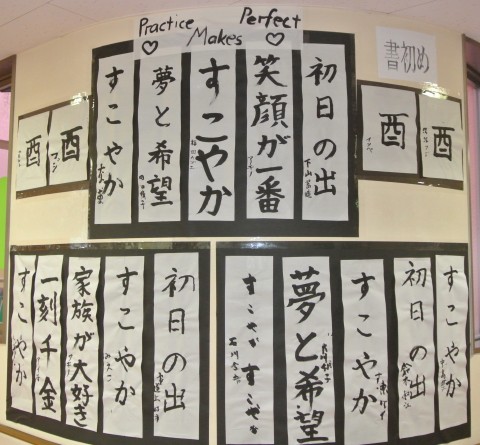 Practice Makes Perfect
書初め
初日の出
笑顔が一番
すこやか
夢と希望
すこやか
酉
酉
酉
酉
すこやか
初日の出
すこやか
夢と希望
すこやか すこやか
初日の出
すこやか
家族が大好き
一刻千金
すこやか